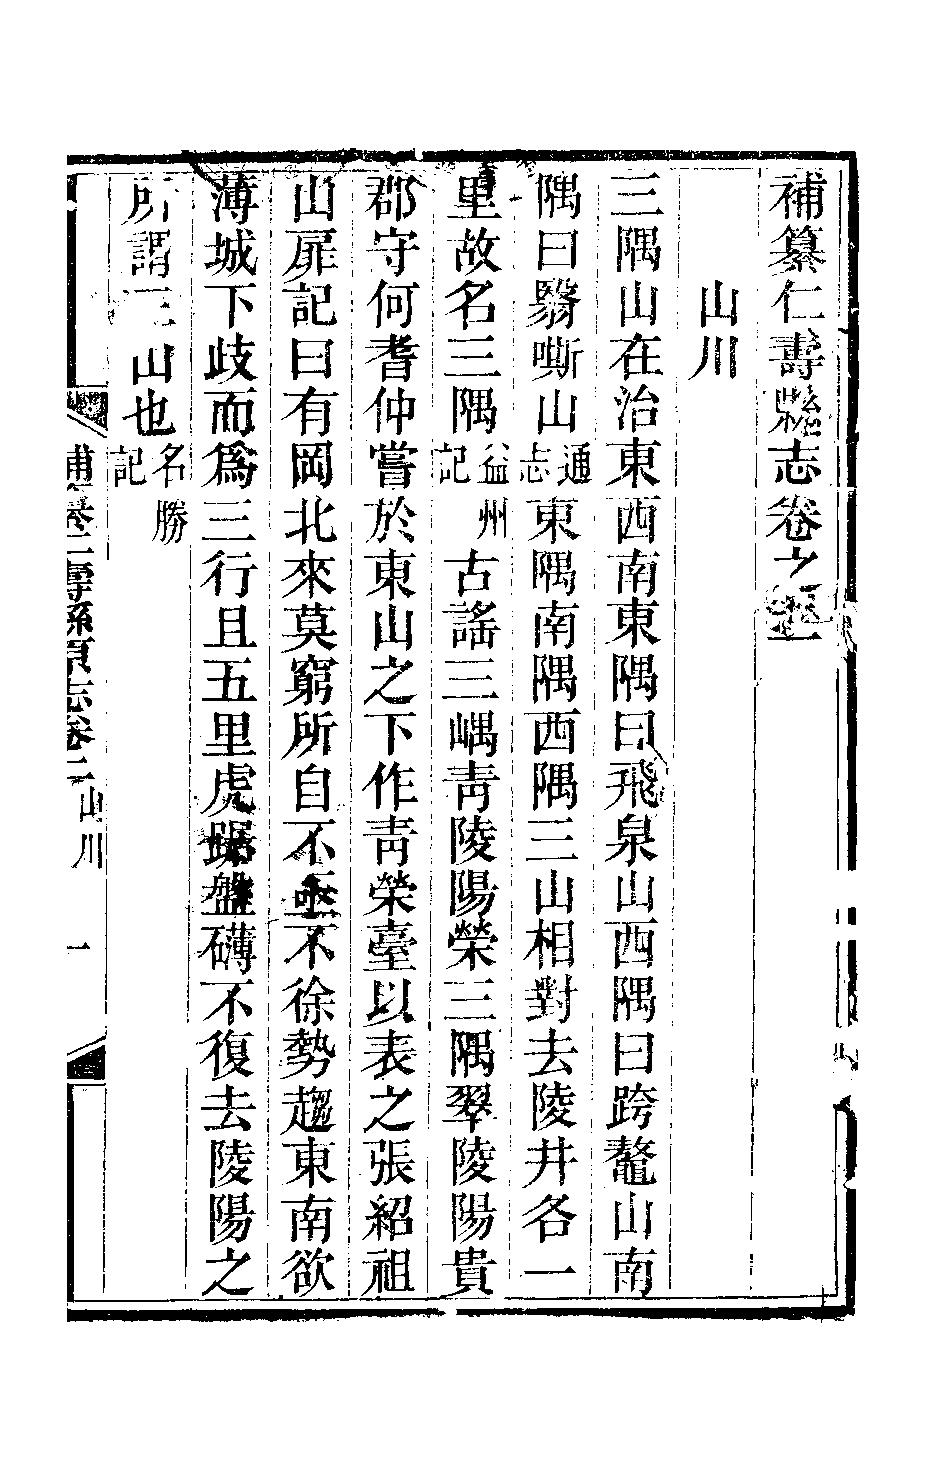 補纂仁壽縣志卷之二
山川
三隅山在治東西南東隅曰飛泉山西隅曰跨鼇山南
隅曰翳嘶山通志東隅南隅西隅三山相對去陵井各一
里故名三隅益州記古謠三嵎靑陵陽榮三隅翠陵陽貴
郡守何耆仲嘗於東山之下作靑榮臺以表之張紹祖
山扉記曰有岡北來莫窮所自不亟不徐勢趨東南欲
薄城下歧而爲三行且五里虎踞盤礴不復去陵陽之
所謂三山也名勝記
補纂仁壽縣原志卷二 山川 一